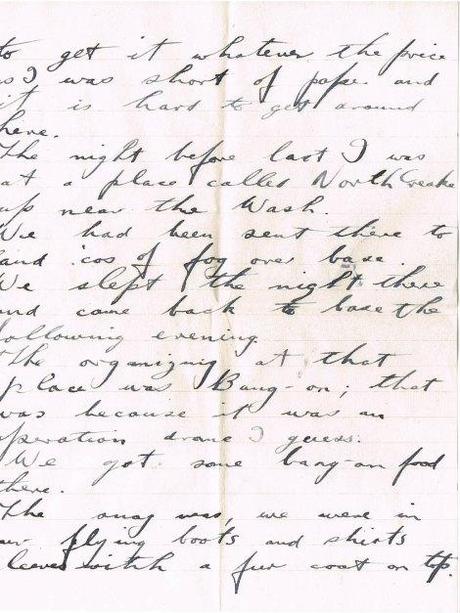 to get it whatever the price
as I was short of paper and
it is hard to get around
here.
The night before last I was
at a place called North Creake
up near the Wash.
We had been sent there to
land 'cos of fog over base.
We slept the night there
and came back to base the
following evening.
The organizing at that
place was Bang-on; that
was because it was an
operation drome I guess.
We got some bang-on food
there.
The snag was, we were in
our flying boots and shirts
sleeves with a fur coat on top.